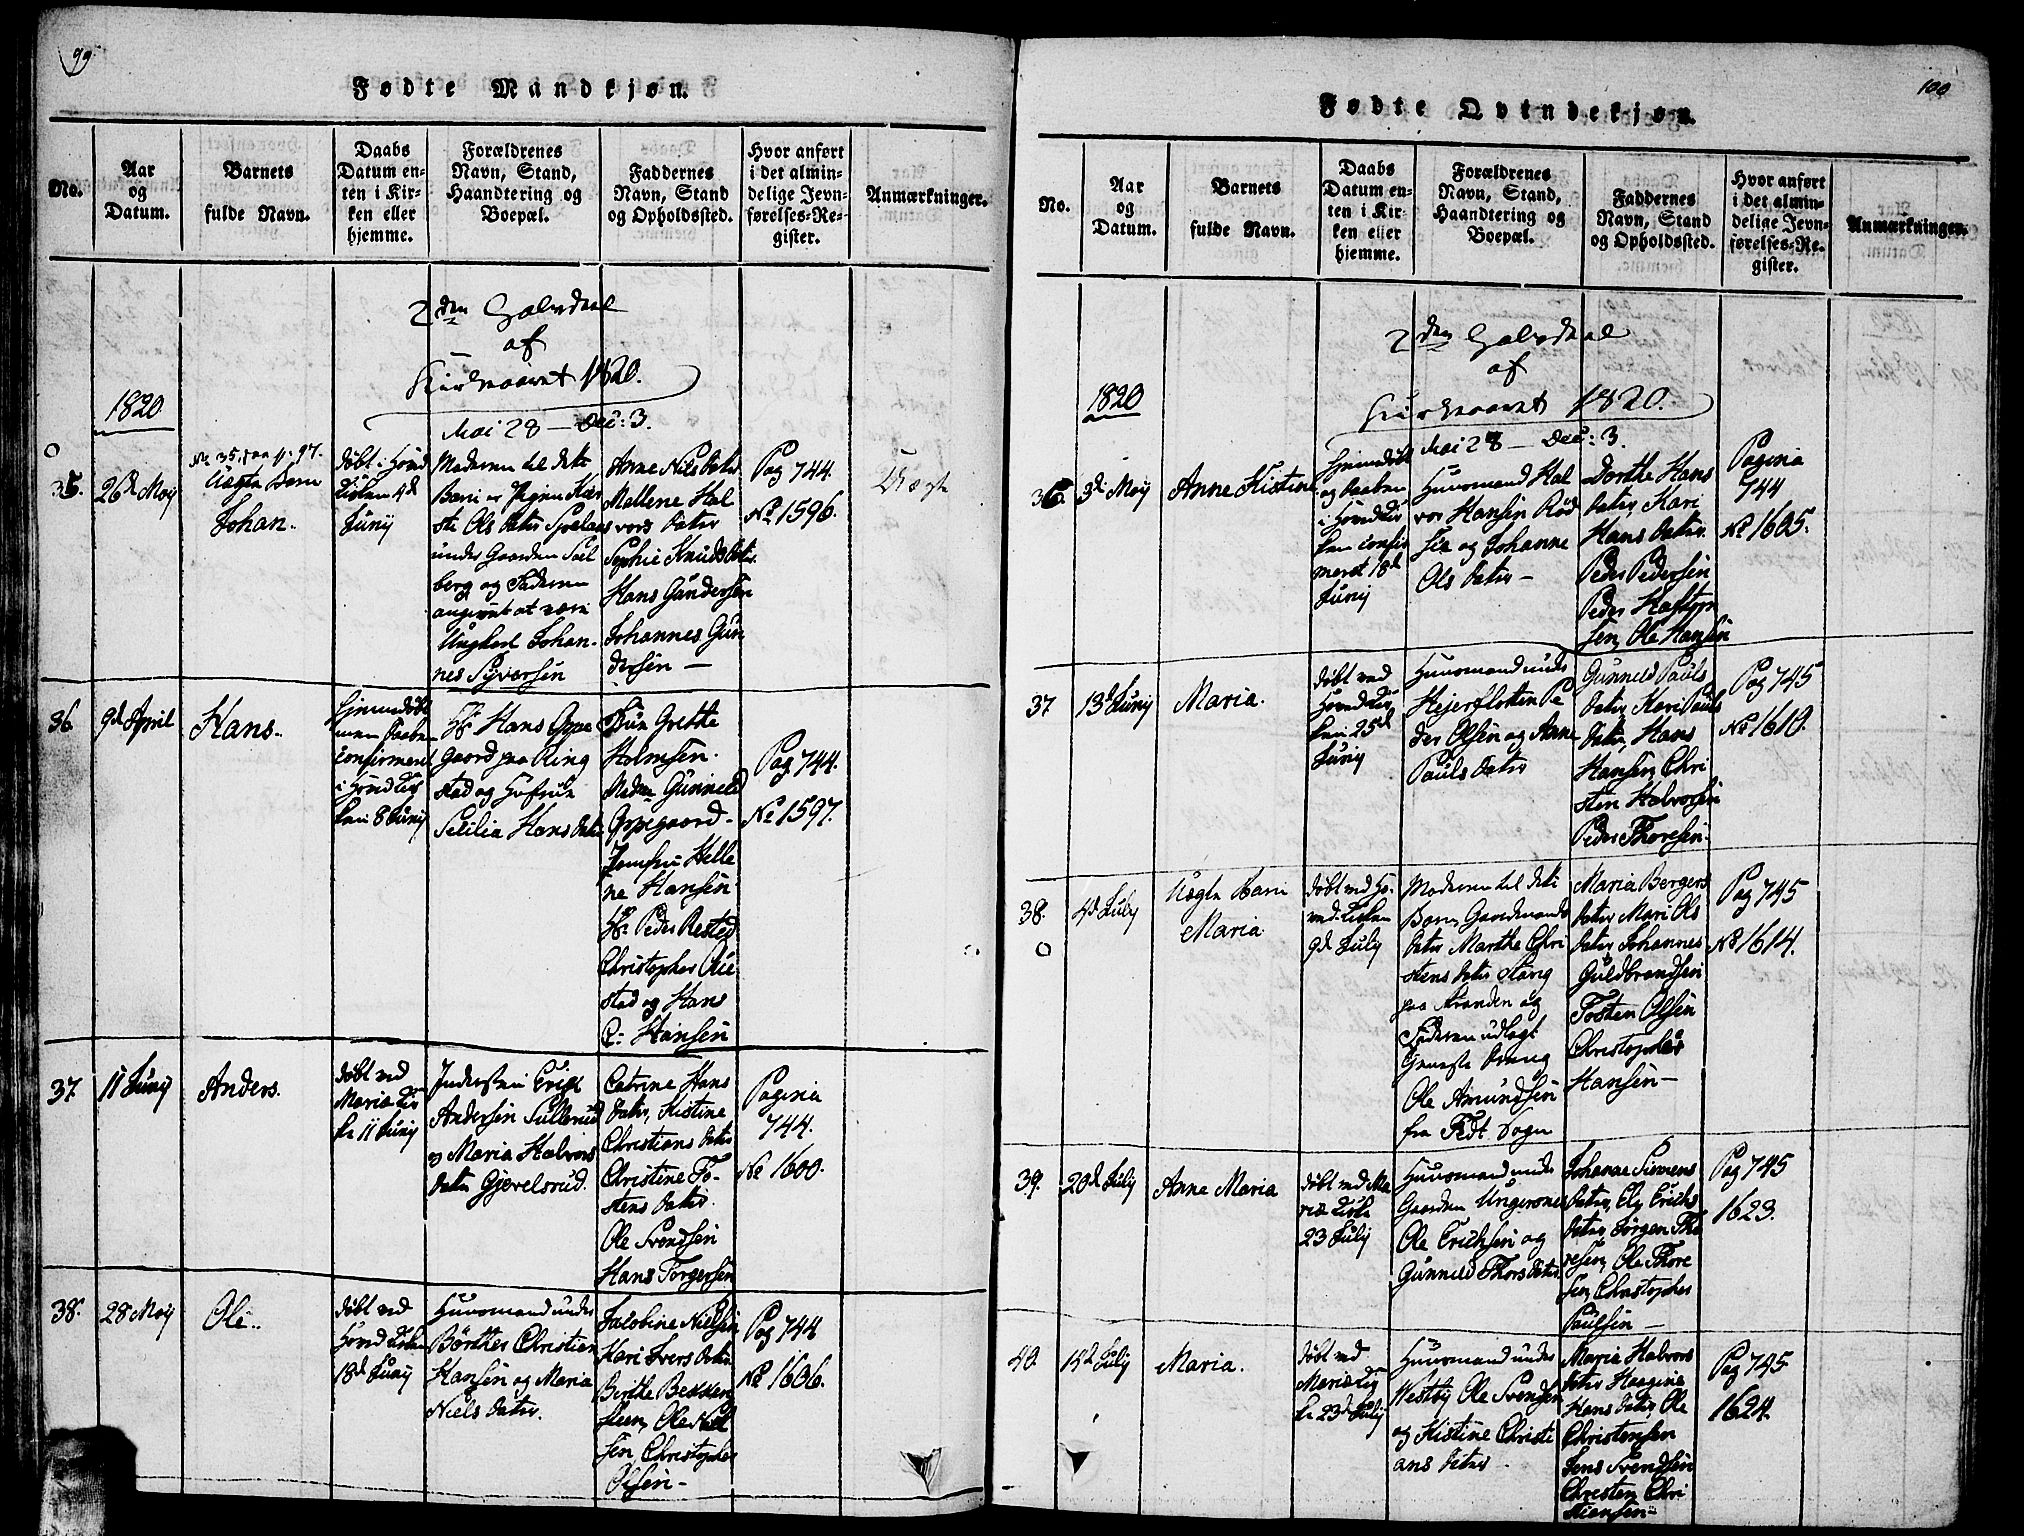 99
Fødte Mandkjøn.
No.
Aar
og
Datum.
Barnets
fulde Navn.
Daabs
Datum en-
ten i Kir-
ken eller
hjemme.
Forældrenes
Navn, Stand,
Haandtering og
Boepæl.
Faddernes
Navn, Stand
og Opholdssted.
Hvor anført
i det almin-
delige Jevn-
førelses-Re-
gister.
Anmærkninger.
2den Halvdeel
af
Kirkeaaret 1820.
Mai 28 — Dec: 3.
1820
35.
26d Maij
No 35, paa p: 97.
Uægte Barn
Johan.
døbt i Hovid
Kirken 4d
Junij
Moderen til dette
Barn er Pigen Kær
sti Ols datter
under Gaarden Sol
berg og Faderen
angivet at være
Ungkarl Johan-
nes Syversen
Anne Nils datter
Mallene Hal
vors datter
Sophie Knuds datter
Hans Gundersen
Johannes Gun
dersen —
Pag 744.
No 1596.
Uægte
36
9d April
Hans.
Hjemmedøbt
men Daaben
confirmeret
i Hovid Kir
ken 8 Junij
Hr Hans Oppe
gaard paa Ring
stad og Hustrue
Sesilia Hans datter
Frue Grethe
Holmsen.
Madme Gunneld
Oppegaard-
Jomfru Helle
ne Hansen
Hr Peder Rested
Christopher Rie
stad og Hans
C: Hansen
Pag 744.
No 1597.
37
11 Junij
Anders.
døbt ved
Mariæ Kir
ke 11 Junij
Inderst Erich
Andersen Sullerud
og Maria Halvors
datter Gjevelsrud.
Catrine Hans
datter, Kistine
Christians datter
Christine To-
stens datter.
Ole Svendsen
Hans Torgersen
Pagina
744.
No 1600.
38.
28 Maij
Ole.
døbt ved
Hovid Kirken
18d Junij
Huusmand under
Børther Christian
Hansen og Maria
Niels datter.
Jacobine Nielsen
Kari Ivers datter
Berthe Bekken
Steen, Ole Niel
sen, Christopher
Olsen-
Pag 744
No 1606.
100
Fødte Qvindekjøn.
No.
Aar
og
Datum.
Barnets
fulde Navn.
Daabs
Datum en-
ten i Kir-
ken eller
hjemme.
Forældrenes
Navn, Stand,
Haandtering og
Boepæl.
Faddernes
Navn, Stand
og Opholdssted.
Hvor anført
i det almin-
delige Jevn-
førelses-Re-
gister.
Anmærkninger.
2den Halvdeel
af
Kirkeaaret 1820.
Mai 28 — Dec: 3.
1820
36.
3d Maij
Anne Kistine
Hjemmedøbt
og Daaben
i Hovid Kir
ken confir
meret 18d
Junij
Huusmand Hal
vor Hansen Rød
sen og Johanne
Ols datter —
Dorthe Hans
datter Kari
Hans datter
Peder Pedersen
Peder
sen, Ole Hansen
Pagina
744
No 1605.
37
13d Junij
Maria.
døbt ved
Hovid Kir
ken 25d
Junij
Huusmand under
Hejerflotten Pe
der Olsen og Anne
Pauls datter
Gunneld Pauls
datter, Kari Pauls
datter, Hans
Hansen, Chri
sten Halvorsen
Peder Thoresen.
Pag 745
No 1610.
38.
4d Julij
Uægte Barn
Maria
døbt ved Ho-
ved Kirken
9d Julij
Moderen til dette
Barn, Gaardmands
datter Marthe Chri
stens datter Stang
paa Stranden og
Faderen udlagt
Gjeneste Dreng
Ole Amundsen
fra Fedt Sogn
Maria Bergers
datter Mari Ols
datter, Johannes
Guldbrandsen
Tosten Olsen
Christopher
Hansen —
Pag 745
No 1614.
39.
20d Julij
Anne Maria
døbt ved Ma
riæ Kirke
23 Julij
Huusmand under
Gaarden Ungersnes
Ole Erichsen og
Gunneld Thors datter
Johanne Simens
datter, Ely Erichs
datter, Jørgen Tho
resen, Ole Thore
sen, Christopher
Paulsen —
Pag 745
1623.
40.
14d Julij
Maria.
døbt ved
Mariæ Kir
ke 23d Julij
Huusmand under
Westby Ole Svendsen
og Kistine Christi
ans datter.
Maria Halvors
datter Haagine
Hans datter, Ole
Christensen
Jens Svendsen
Christen Chri
stiansen-
Pag 745
1624.